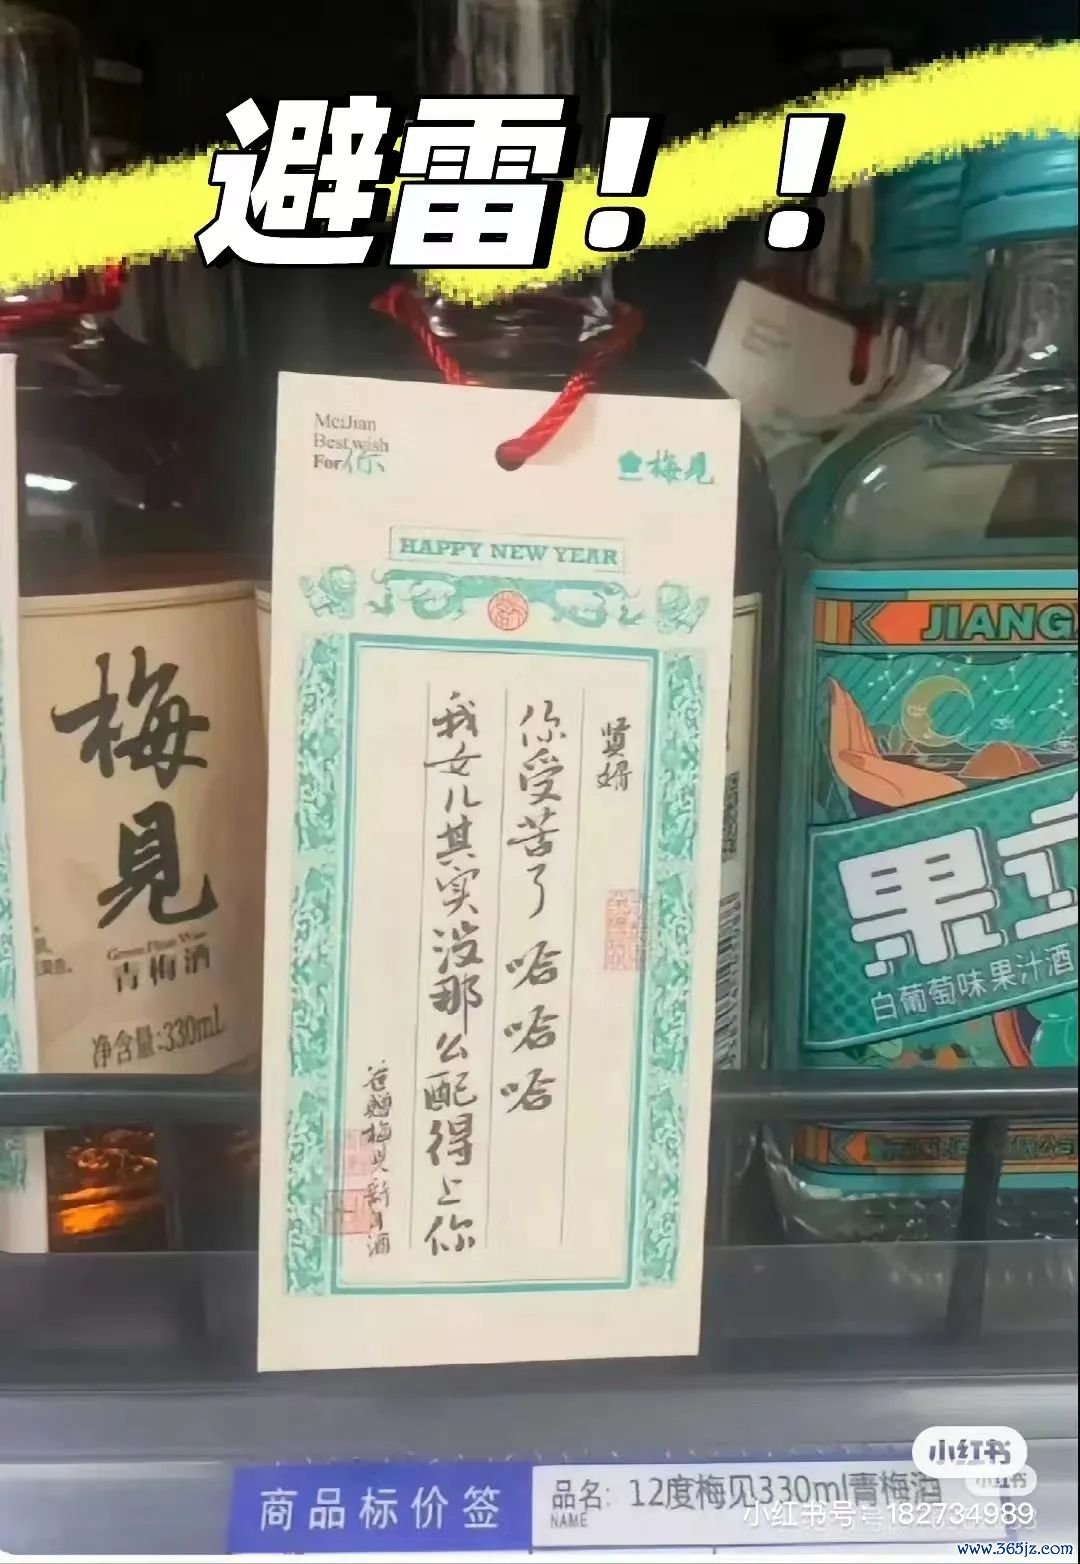 避雷！！
MeiJian
Best wish
For 你
梅見
HAPPY NEW YEAR
贤婿
你受苦了哈哈哈
我女儿其实没那么配得上你
爸赠梅见新年酒
梅
見
Green Plum Wine
青梅酒
净含量:330mL
JIANG
果立
白葡萄味果汁酒
商品标价签
品名: 12度梅见330ml青梅酒
NAME
小红书
小红书
小红书号: 182734989
www.365jz.com